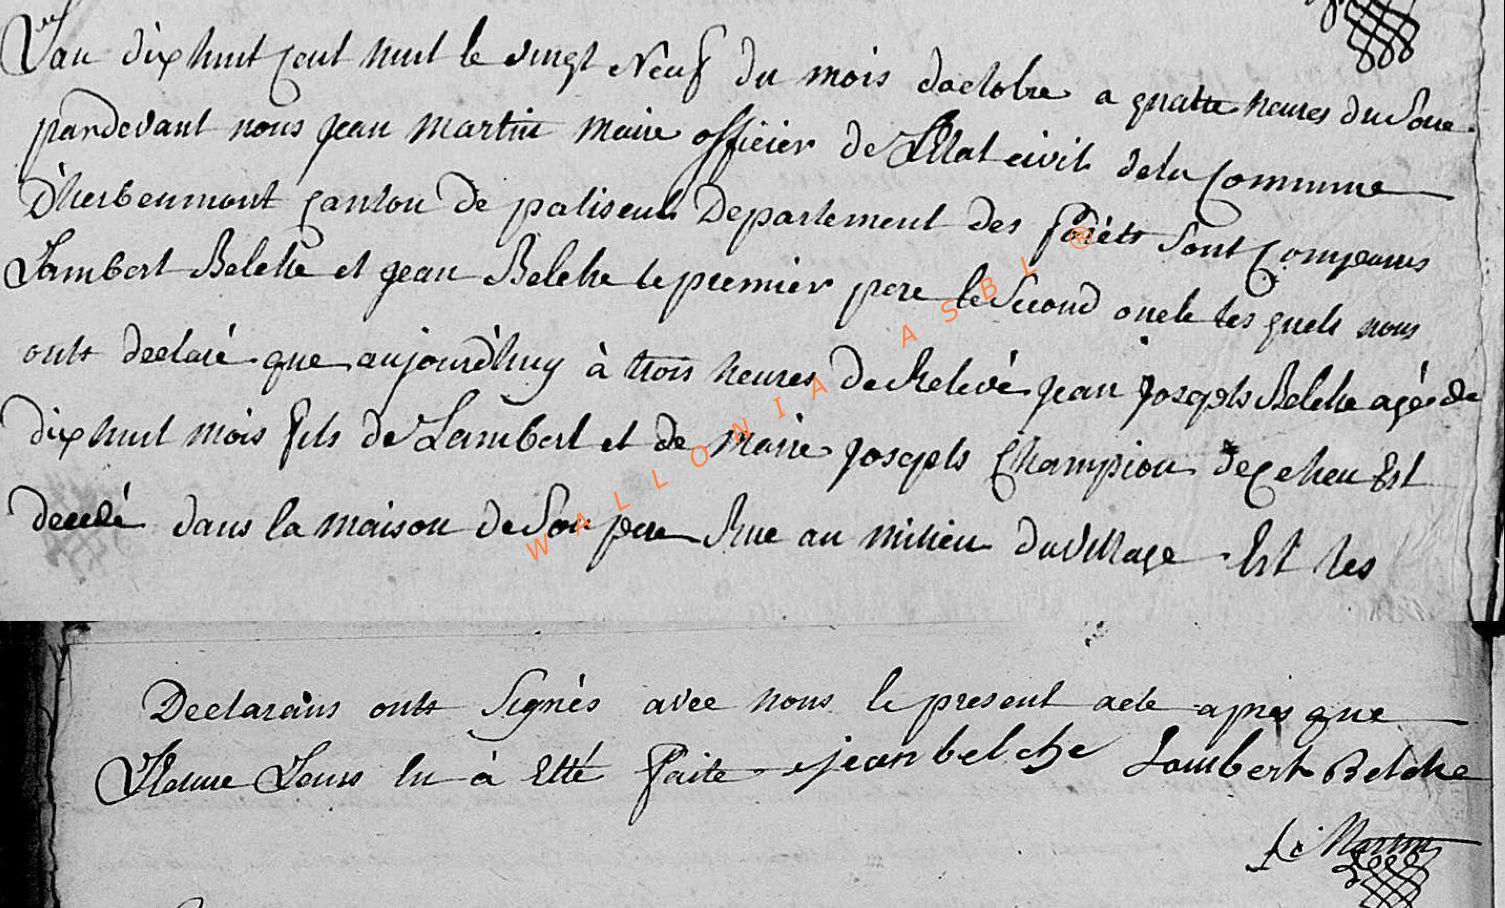 L'an dix huit cent huit le vingt Neuf du mois d'actobre a quatte heures du Soire
pardevant nous jean martin maire officier de L'Etat civil de la Commune
D'herbeumont canton de paliseul Departement des forêts Sont Comparus
Lambert Belche et jean Belche le premier pere le Second oncle les quels nous
onts declaré que aujourd'huy à trois heures de Relevé jean joseph Belche agé de
dix huit mois fils de Lambert et de Marie joseph Champion de ce lieu Est
decedé dans la maison de Son pere Rue au milieu du village Est les
WALLONIA ASBL ®
Declarans onts Signés avec nous le present acte apres que
lecture leurs lu à Etté faite jean belche Lambert Belche
J: Martin